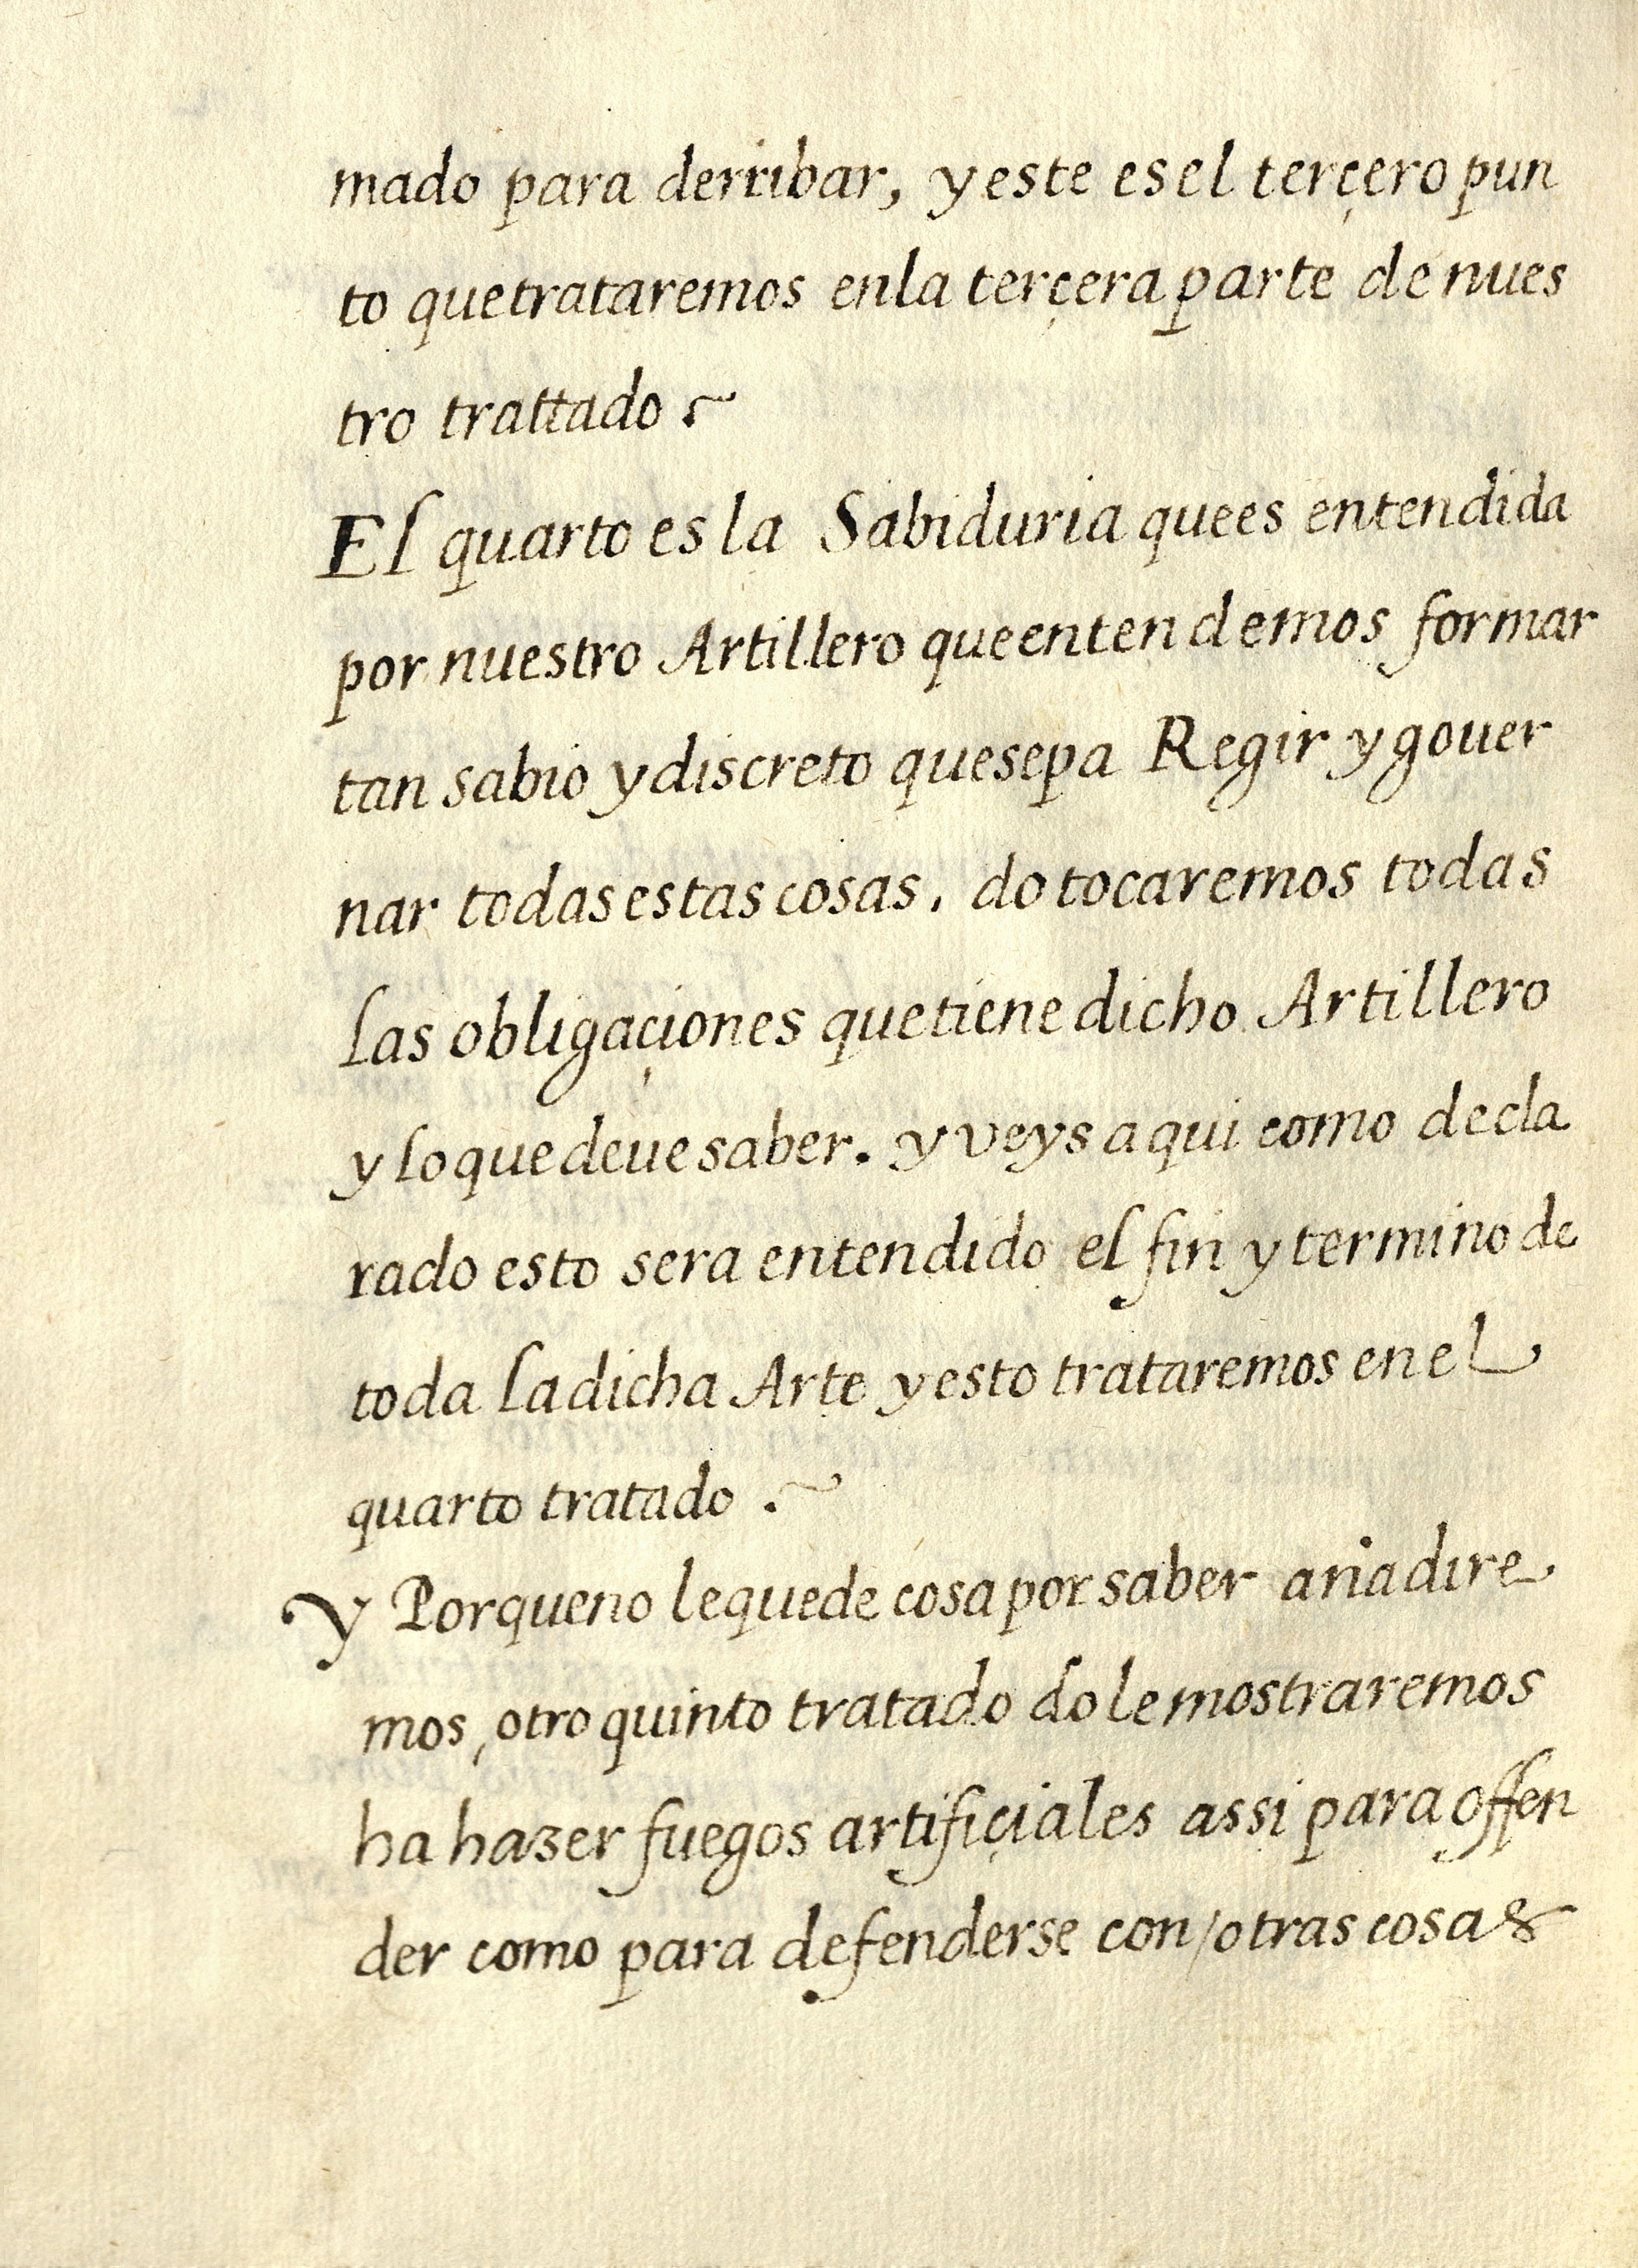 mado para derribar, y este es el terçero pun
to que trataremos en la terçera parte de nues
tro trattado ~
El quarto es la Sabiduria que es entendida
por nuestro Artillero que entendemos formar
tan sabio y discreto que sepa Regir y gouer
nar todas estas cosas. do tocaremos todas
las obligaçiones que tiene dicho Artillero
y lo que deue saber. y veys aqui como decla
rado esto sera entendido el fin y termino de
toda la dicha Arte y esto trataremos en el
quarto tratado . ~
Y Porque no le quede cosa por saber añadire
mos, otro quinto tratado do le mostraremos
ha hazer fuegos artifiçiales assi para offen
der como para defenderse con / otras cosas